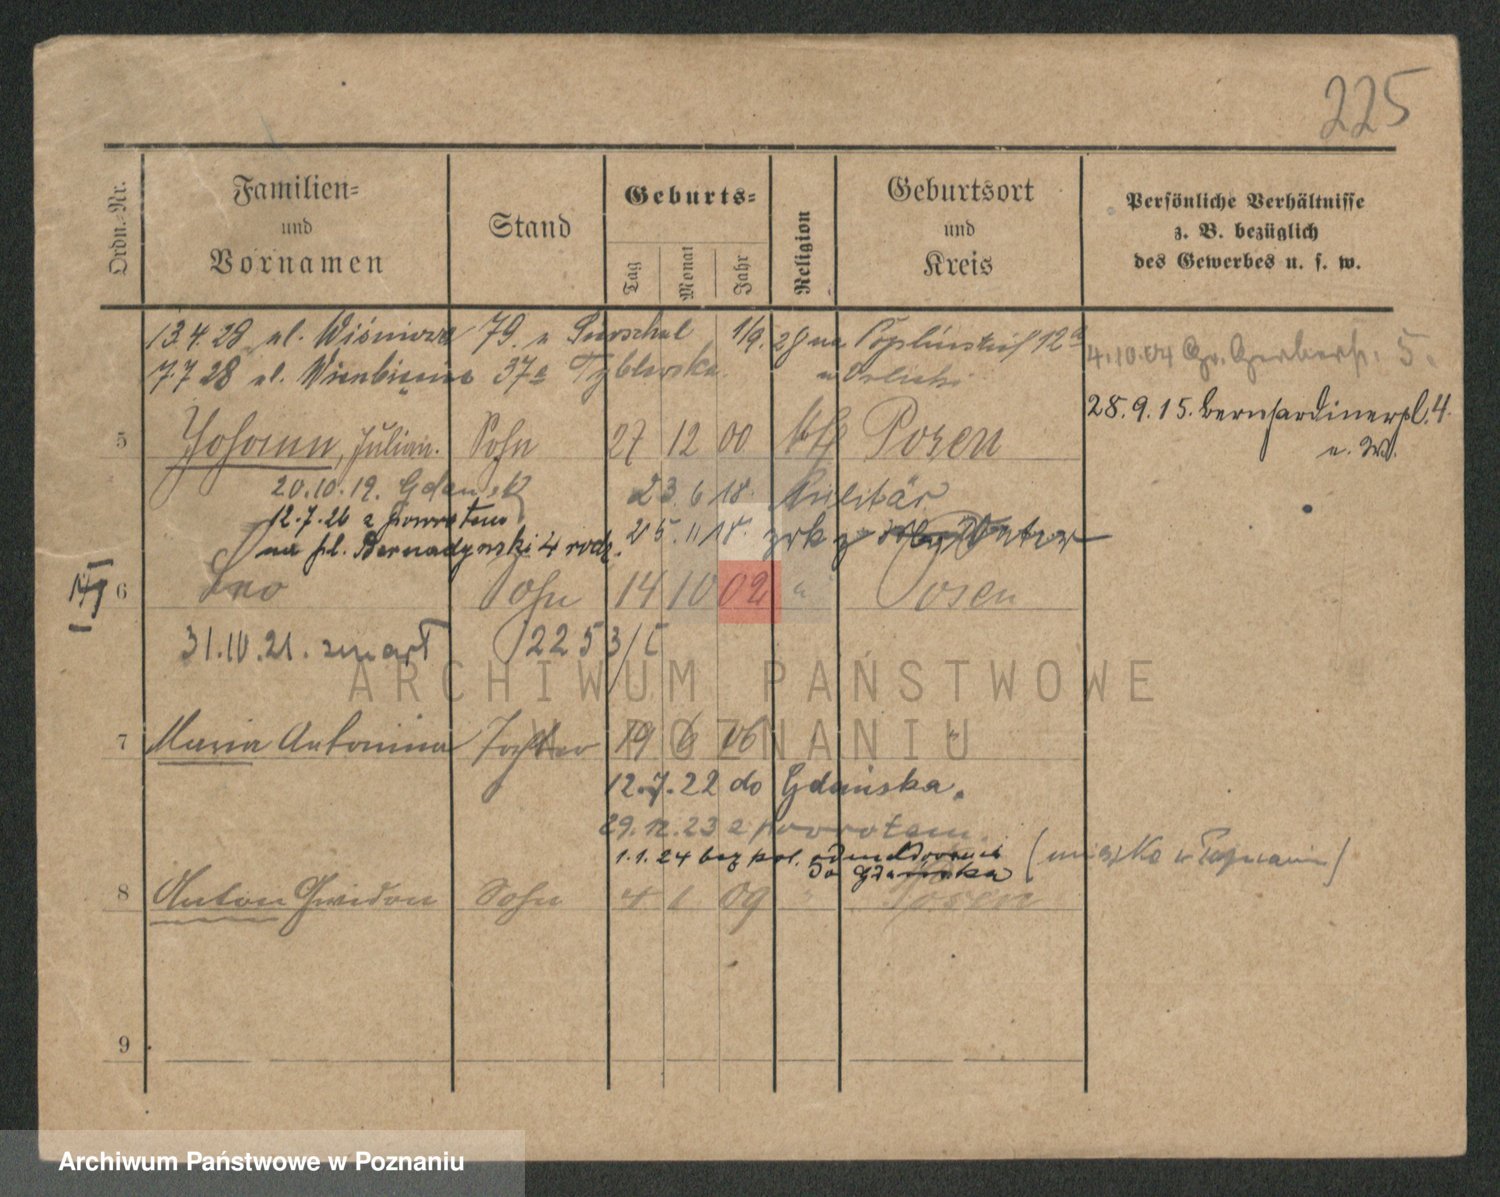 225
Ordn.-Nr.
Familien-
und
Vornamen
Stand
Geburts-
Tag
Monat
Jahr
Religion
Geburtsort
und
Kreis
Persönliche Verhältnisse
z. B. bezüglich
des Gewerbes u. s. w.
13.4.28 ul. Wiśniowa 79. u 1/9. 28 na 12a
7.7 28 ul. 37a
4.10.04 Gr. Gerberst. 5.
28.9.15. Bernhardinerpl. 4.
u. W.
5 Johann, Julian. Sohn 27 12 00 kth Posen
20.10.19. Gdańsk 23.6.18. Militär
12.7.26 z powrotem
na pl. Bernadyński 4 rodz. 25.11.18.
6 Leo Sohn 14 10 02 " Posen
31.10.21. zmarł 2253/
7 Maria Antonina Tochter 19 6 06 "
12.7.22 do Gdańska.
29.12.23 z powrotem.
1.1.24 bez pol. odmeldowania
do Gdańska
8 Anton Gwidon Sohn 4 1 09 " Posen
9
ARCHIWUM PAŃSTWOWE
W POZNANIU
Archiwum Państwowe w Poznaniu